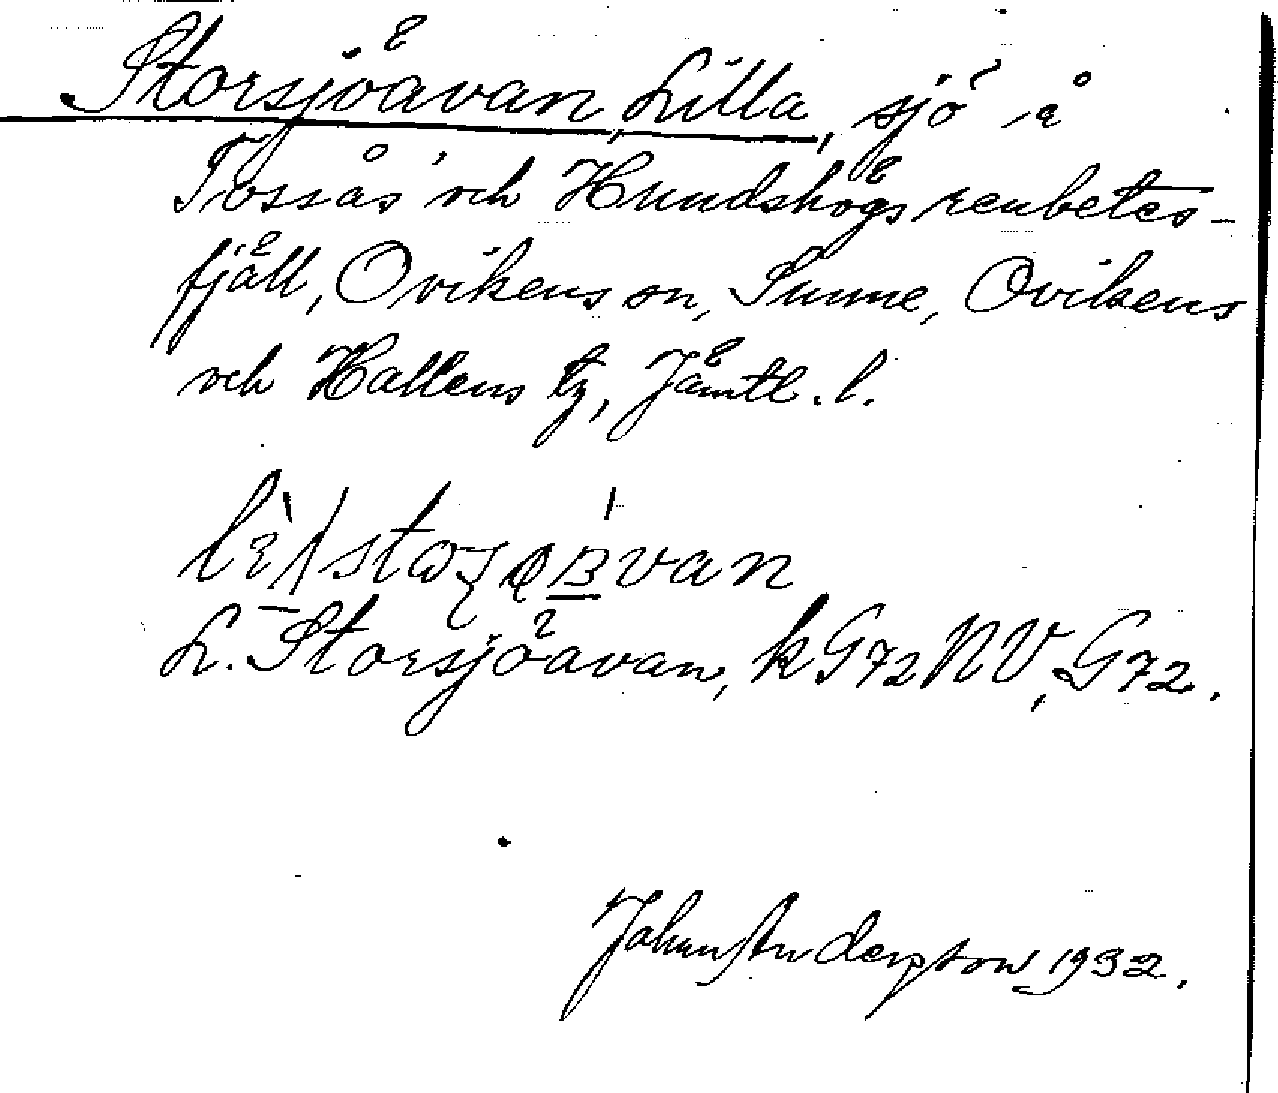 Storsjöavan, Lilla, sjö å
Tossås och Hundshögs renbetes-
fjäll, Ovikens sn, Sunne, Ovikens
och Hallens tg, Jämtl. l.
L. Storsjöavan, k G72 NV, G72.
Johan Anderson 1932.